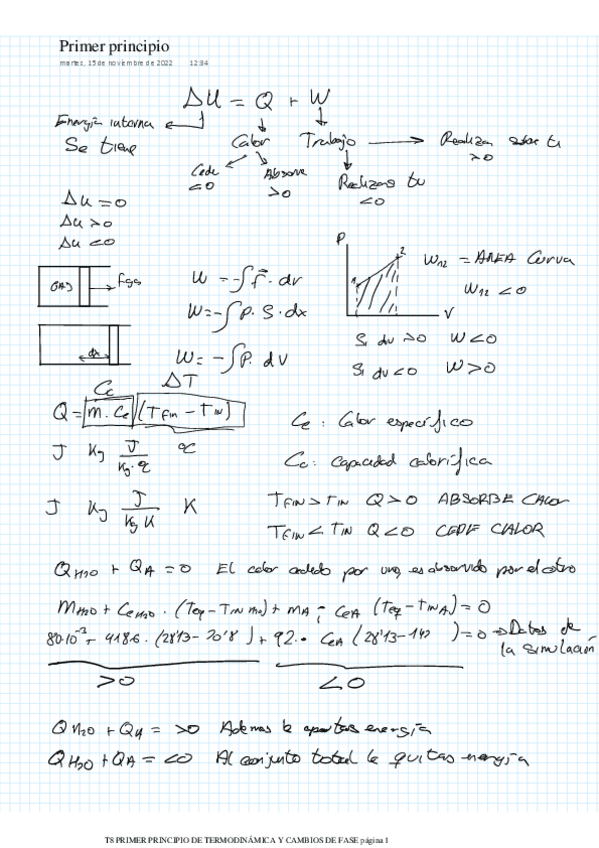 Primer principio
martes, 15 de noviembre de 2022 12:34
ΔU = Q + W
Energía interna
Se tiene
Calor
Trabajo → Realiza sobre tu >0
Cede <0
Absorve >0
Realizas tu <0
ΔU = 0
ΔU > 0
ΔU < 0
GAS
Fgas
W = -∫ f⃗ · dr
W = -∫ P · S · dx
dx
W = -∫ P · dV
P
1
2
V
W12 = AREA Curva
W12 < 0
Si dv > 0 W < 0
Si dv < 0 W > 0
Cc ΔT
Q = m · Ce (TFin - TIN)
J Kg J/Kg·ºC ºC
J Kg J/Kg K K
Ce : Calor específico
Cc : Capacidad calorífica
TFIN > TIN Q > 0 ABSORBE CALOR
TFIN < TIN Q < 0 CEDE CALOR
QH2O + QA = 0 El calor cedido por uno, es absorvido por el otro
MH2O + CeH2O · (Teq - TIN H2O) + MA · CeA (Teq - TIN A) = 0
4186 · (28'13 - 20'8) + 92 · CeA (28'13 - 142) = 0 → Datos de la simulación
>0 <0
QH2O + QA = >0 Ademas le aportas energía
QH2O + QA = <0 Al conjunto total le quitas energía
T8 PRIMER PRINCIPIO DE TERMODINÁMICA Y CAMBIOS DE FASE página 1